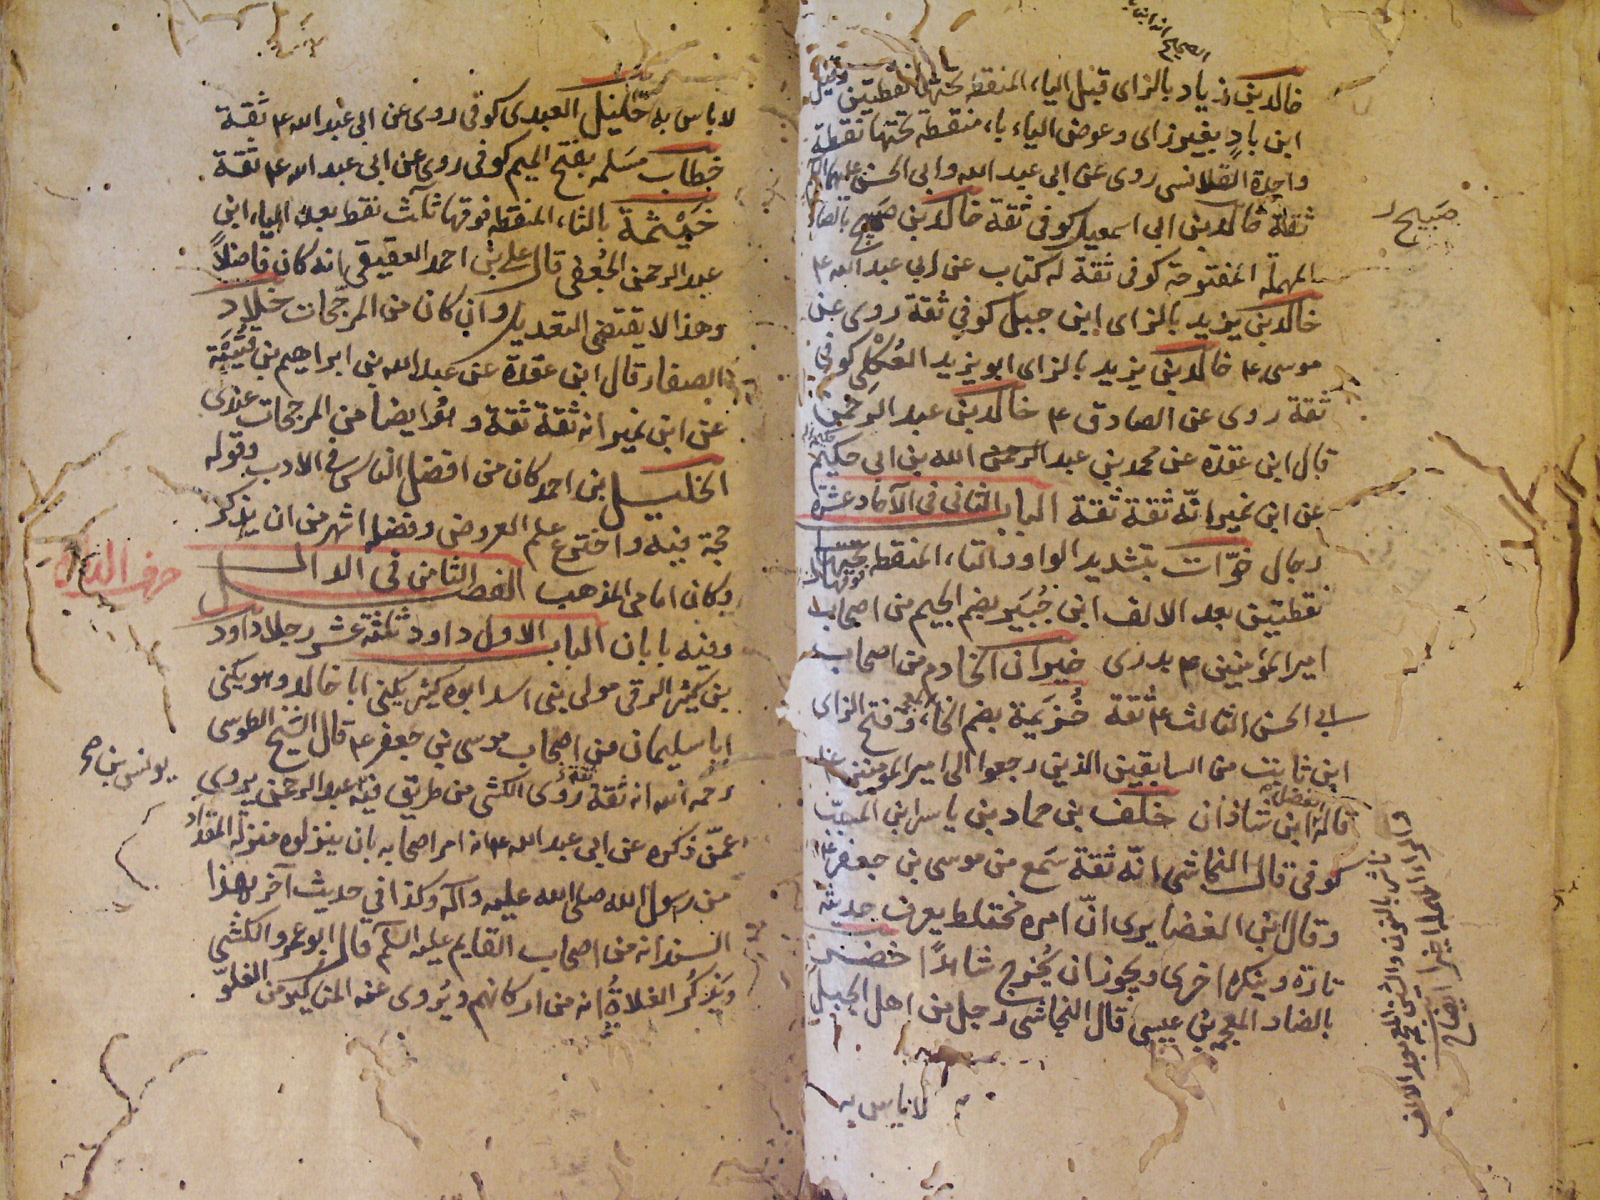 الصحيح انه ابن
خالد بن زياد بالزاى قبل الياء المنقطة تحتها نقطتين وقيل
ابن باد بغير زاى وعوض الياء باء منقطة تحتها نقطة
واحدة القلانسى روى عن ابى عبد الله وابى الحسن عليهما السلم
ثقة خالد بن ابى اسمعيل كوفى ثقة خالد بن صبيح بالصاد
صبيح
المهملة المفتوحة كوفى ثقة له كتاب عن ابى عبد الله ع
خالد بن يزيد بالزاى ابن جبل كوفي ثقة روى عن
موسى ع خالد بن يزيد بالزاى ابو يزيد العُكْلى كوفى
ثقة روى عن الصادق ع خالد بن عبد الرحمن
قال ابن عقدة عن محمد بن عبد الرحمن الله بن ابى حكيم
عن ابن نمير انّه ثقة ثقة الباب الثانى فى الآحاد عشرة
رجال خوّات بتشديد الواو والتاء المنقطة
نقطتين بعد الالف ابن جُبَير بضم الجيم من اصحاب
امير المؤمنين ع بدرى خيران الخادم من اصحاب
ابى الحسن الثالث ع ثقة خُزَيمة بضم الخاء وفتح الزاى
ابن ثابت من السابقين الذين رجعوا الى امير المؤمنين ع
قاله الفضل ابن شاذان خلف بن حماد بن ياسر ابن المسيّب
كوفى قال النجاشى انّه ثقة سَمع من موسى بن جعفر ع
وقال ابن الغضايرى انّ امره مختلط يعرف حديثه
تارة وينكر اخرى ويجوز ان يُخرج شاهدًا خضر
بالضاد المعجمة بن عيسى قال النجاشى رجل من اهل الجبل
لا باس به
لا باس به خليل العبدى كوفى روى عن ابى عبد الله ع ثقة
خطاب مسَلمه بفتح الميم كوفى روى عن ابى عبد الله ع ثقة
خَيْثمة بالثاء المنقطه فوقها ثلث نقط بعد الياء ابن
عبد الرحمن الجُعفى قال على بن احمد العقيقى انه كان فاضلًا
وهذا لا يقتضى التعديل وان كان من المرجّحات خلاد
الصفار قال ابن عقدة عن عبد الله بن ابراهيم بن قتيبة
عن ابن نمير انه ثقة ثقة وهو ايضا من المرجحات عندى
الخليل بن احمد كان من افضل الناس فى الادب وقوله
حجة فيه واخترع علم العروض وفضله اشهر من ان يذكر
وكان امامى المذهب الفصل الثامن فى الدال
حرف الدال
وفيه بابان الباب الاول داود ثلثة عشر رجلا داود
بن كثير الرقى مولى بنى اسد ابوه كثير يكنى ابا خالد وهو يكنى
ابا سليمان من اصحاب موسى بن جعفر ع قال الشيخ الطوسى
رحمه الله انه ثقة روى الكشى من طريق فيه عبد الرحمن يروى
يونس بن
عمّن ذكره عن ابى عبد الله ع انه امر اصحابه بان ينزلوه منزلة المقداد
من رسول الله صلى الله عليه وآله وكذا في حديث آخر بهذا
السند انه من اصحاب القايم عليه السلم قال ابو عمرو الكشى
ويَذكُر الغلاة انه من اركانهم ويُروى عنه المناكير من الغلوّ